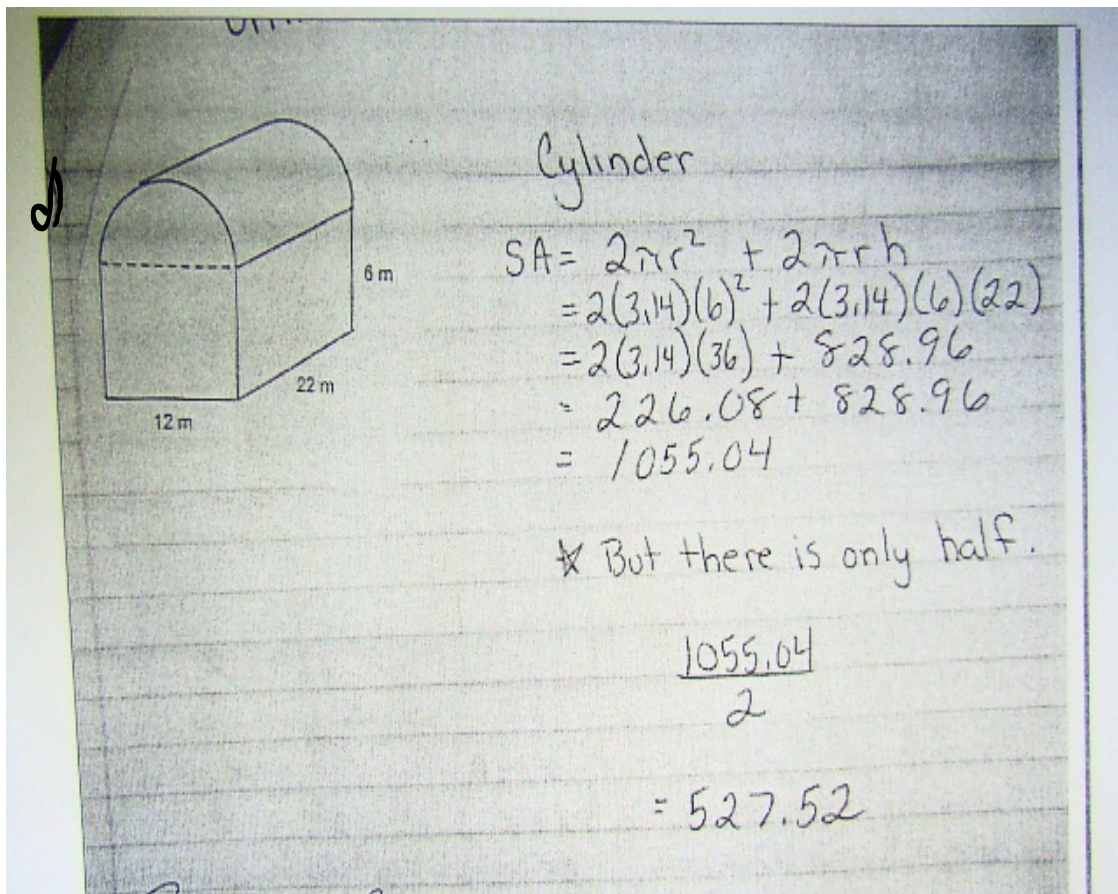 d)
6 m
22 m
12 m
Cylinder
SA = 2πr² + 2πrh
= 2(3.14)(6)² + 2(3.14)(6)(22)
= 2(3.14)(36) + 828.96
= 226.08 + 828.96
= 1055.04
☆ But there is only half.
1055.04
2
= 527.52